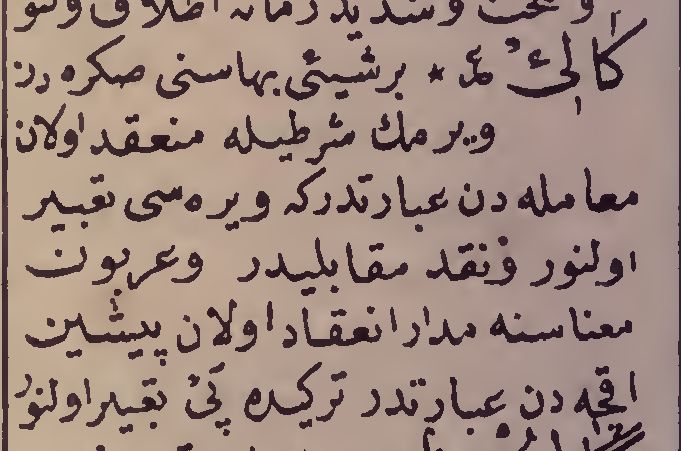 و بخت و شدید زمانه اطلاق اولنو
كَالِئُ ع * برشیئی بهاسنی صکره دن
ویرمك شرطیله منعقد اولان
معامله دن عبارتدرکه ویره سی تعبیر
اولنور و نقد مقابلیدر وعربون
معناسنه مدار انعقاد اولان پیشین
اقچه دن عبارتدر ترکیده پَیْ تعبیر اولنور